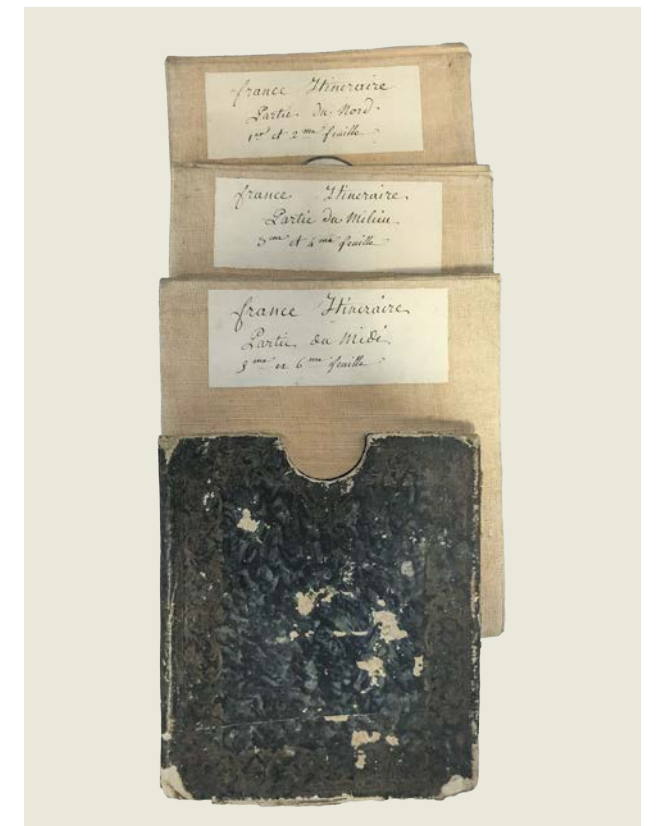 france Itineraire
Partie du Nord
1re et 2me feuille
france Itineraire
Partie du Milieu
3me et 4me feuille
france Itineraire
Partie du Midi
5me et 6me feuille